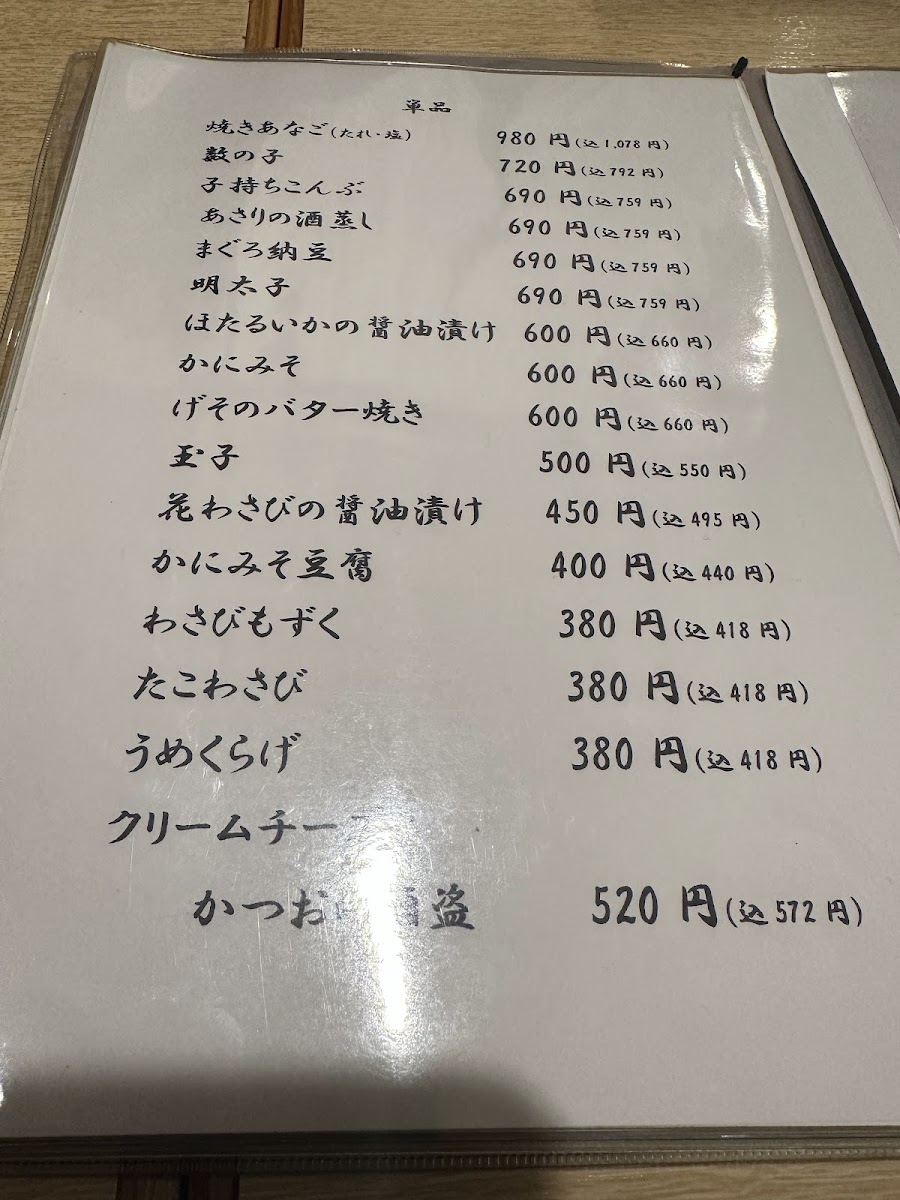 単品
焼きあなご(たれ・塩) 980 円(込 1,078 円)
数の子 720 円(込 792 円)
子持ちこんぶ 690 円(込 759 円)
あさりの酒蒸し 690 円(込 759 円)
まぐろ納豆 690 円(込 759 円)
明太子 690 円(込 759 円)
ほたるいかの醤油漬け 600 円(込 660 円)
かにみそ 600 円(込 660 円)
げそのバター焼き 600 円(込 660 円)
玉子 500 円(込 550 円)
花わさびの醤油漬け 450 円(込 495 円)
かにみそ豆腐 400 円(込 440 円)
わさびもずく 380 円(込 418 円)
たこわさび 380 円(込 418 円)
うめくらげ 380 円(込 418 円)
クリームチーズ
かつお 酒盗 520 円(込 572 円)